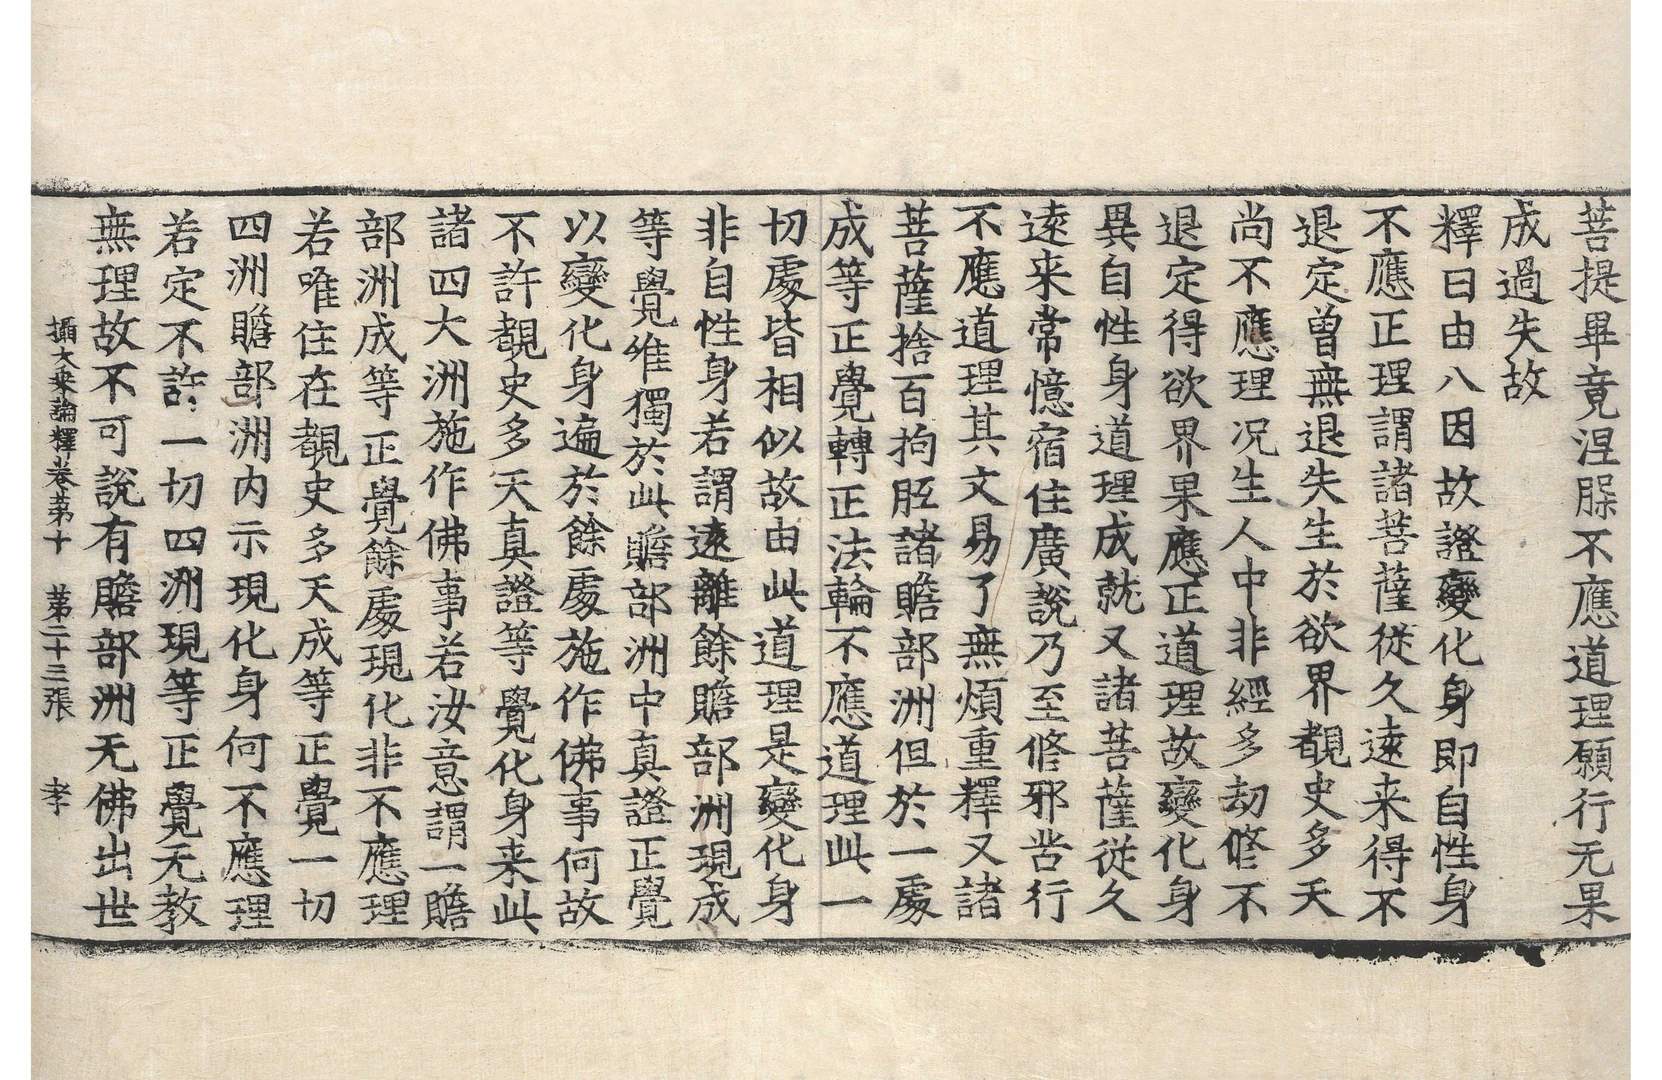 菩提畢竟涅槃不應道理願行无果
成過失故
釋曰由八因故證變化身即自性身
不應正理謂諸菩薩從久遠来得不
退定曾無退失生於欲界覩史多天
尚不應理况生人中非經多劫修不
退定得欲界果應正道理故變化身
異自性身道理成就又諸菩薩從久
遠来常憶宿住廣說乃至修邪苦行
不應道理其文易了無煩重釋又諸
菩薩捨百拘胝諸贍部洲但於一處
成等正覺轉正法輪不應道理此一
切處皆相似故由此道理是變化身
非自性身若謂遠離餘贍部洲現成
等覺唯獨於此贍部洲中真證正覺
以變化身遍於餘處施作佛事何故
不許覩史多天真證等覺化身来此
諸四大洲施作佛事若汝意謂一贍
部洲成等正覺餘處現化非不應理
若唯住在覩史多天成等正覺一切
四洲贍部洲内示現化身何不應理
若定不許一切四洲現等正覺无教
無理故不可說有贍部洲无佛出世
攝大乘論釋卷苐十　苐二十三張　孝